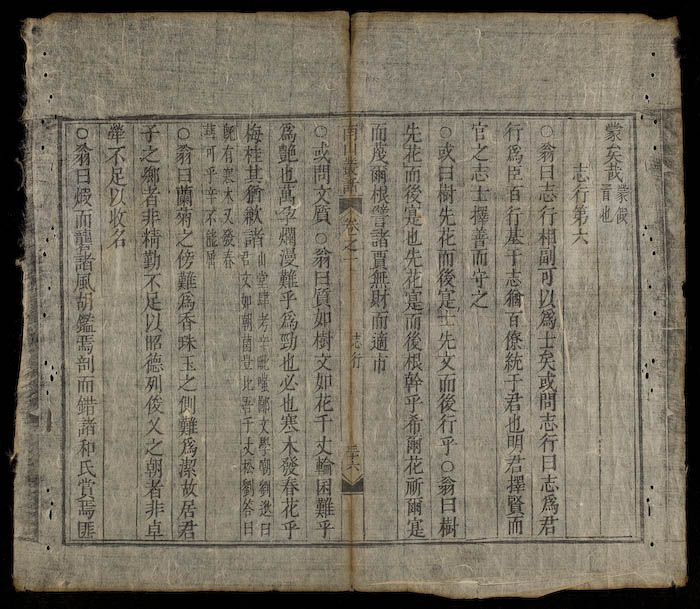 蒙矣哉蒙蔽
晉也
志行第六
○翁曰志行相副可以爲士矣或問志行曰志爲君
行爲臣百行基于志猶百僚統于君也明君擇賢而
官之志士擇善而守之
○或曰樹先花而後寔士先文而後行乎○翁曰樹
先花而後寔也先花寔而後根幹乎希爾花祈爾寔
而茂爾根譬諸賈無財而適市
卷之一 志行 三十六
○或問文質○翁曰質如樹文如花千丈輪囷難乎
爲艷也萬孚爛漫難乎爲勁也必也寒木發春花乎
梅桂其猶歉諸山堂肆考辛毗鄴文學劉逖曰
君文如朝菌登比吾千丈松劉答曰
旣有寒木又發春
華可乎辛不能屈
○翁曰蘭菊之傍難爲香珠玉之側難爲潔故居君
子之鄉者非精勤不足以昭德列俊乂之朝者非卓
犖不足以收名
○翁曰煆而諸風胡鑑焉剖而錯諸和氏賞焉匪